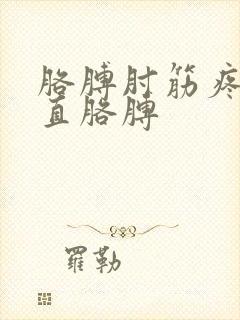 胳膊肘筋疼
直胳膊
羅勒